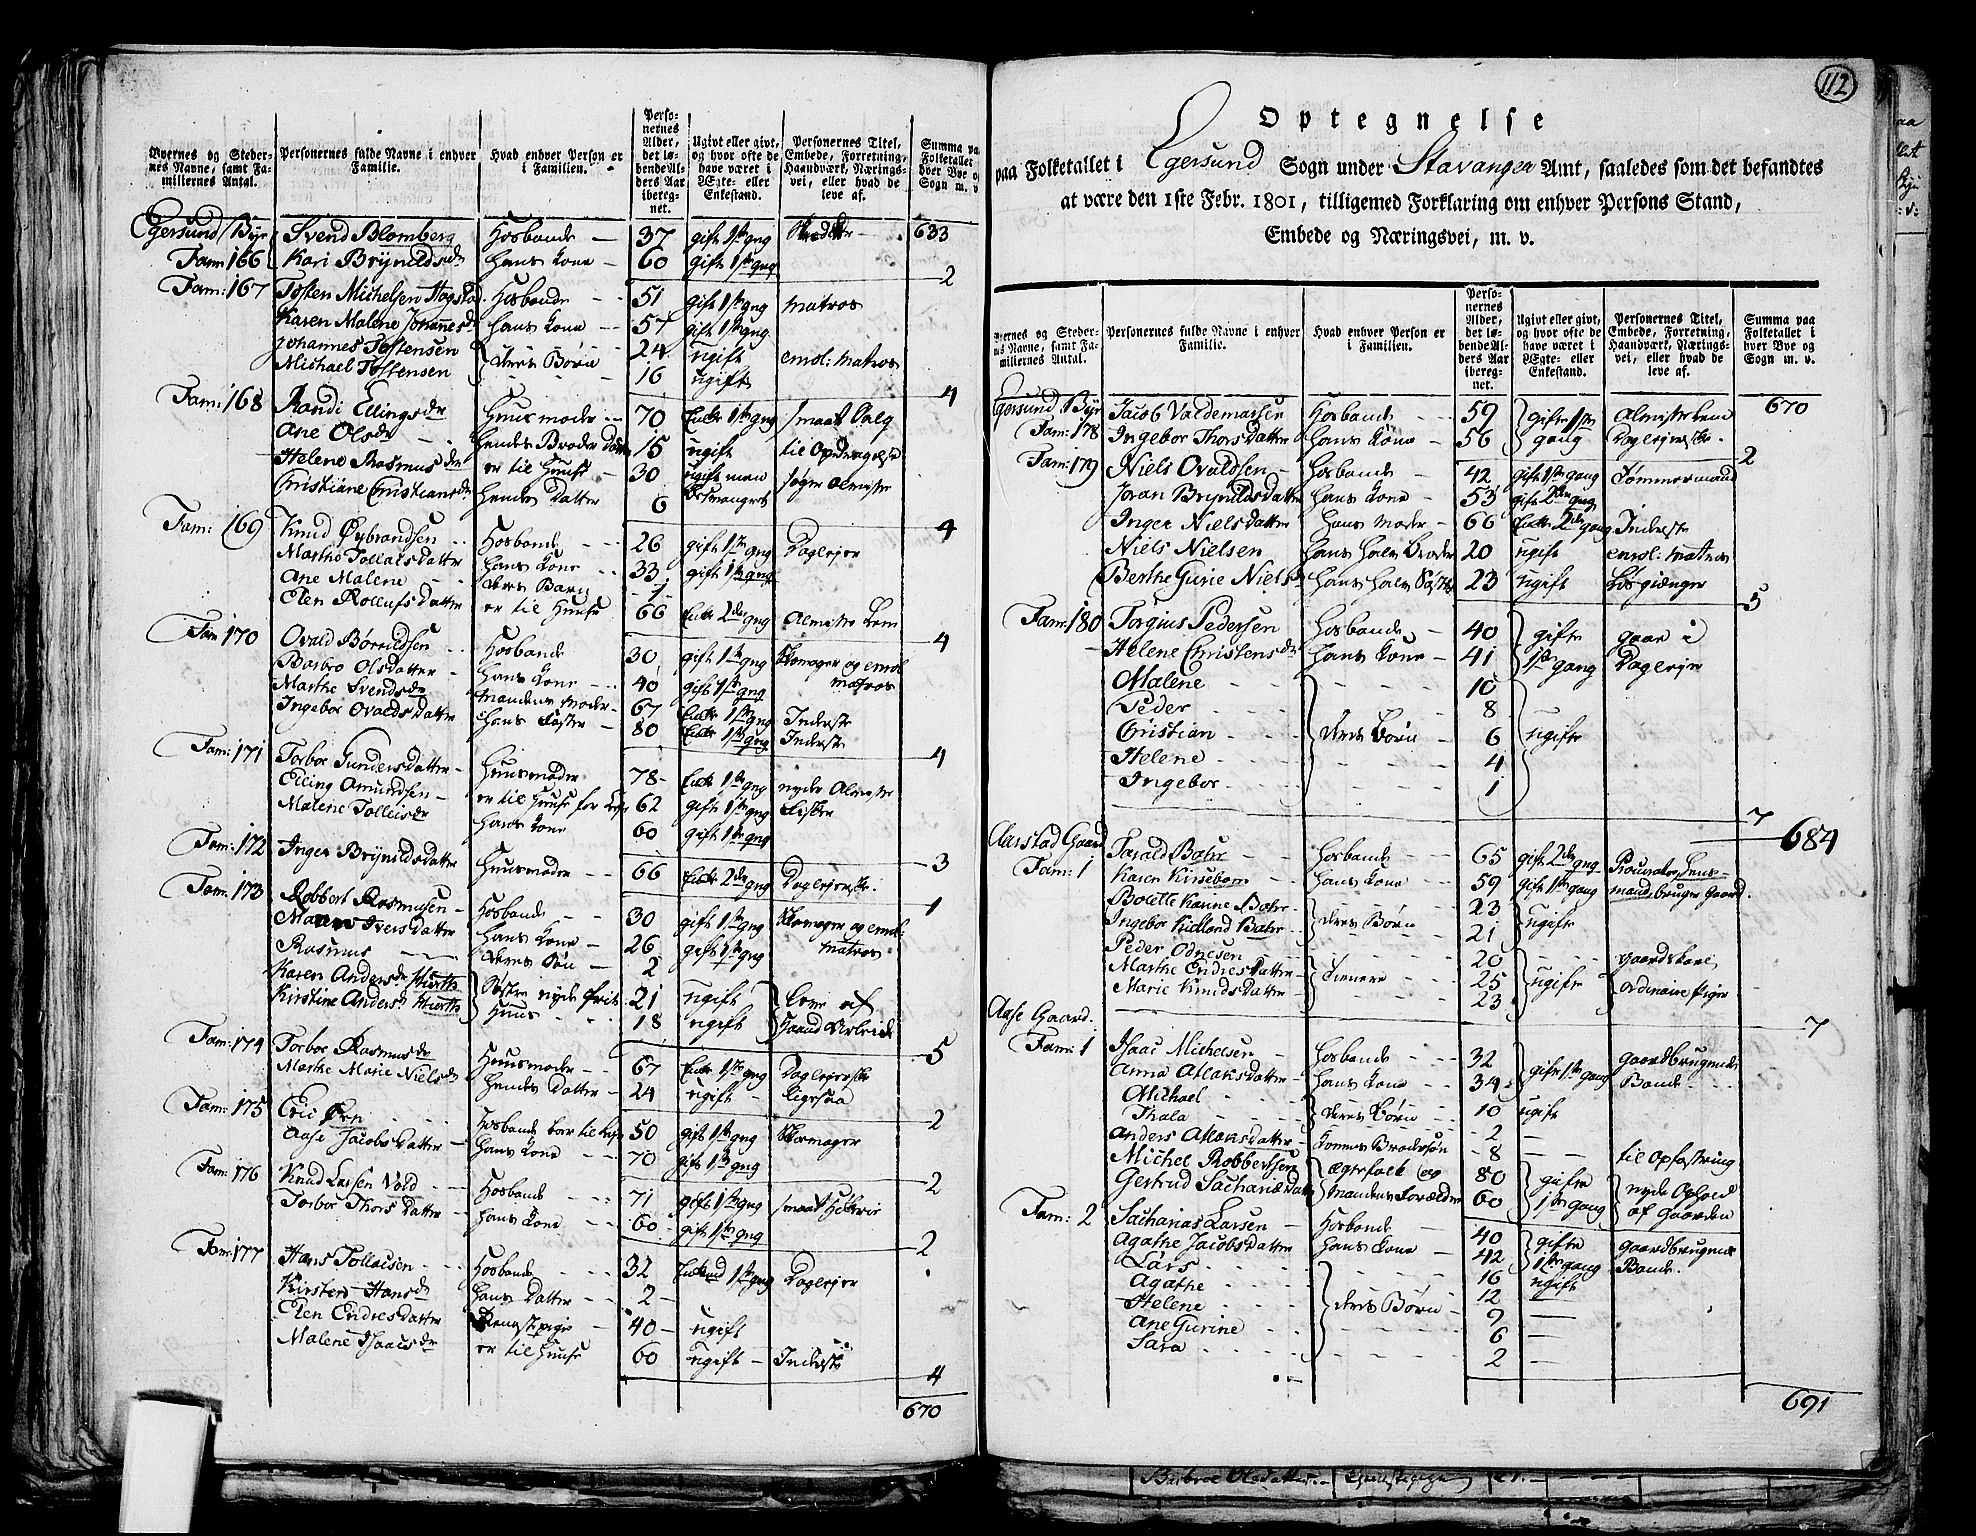 112
Byernes og Steder-
nes Navne, samt Fa-
miliernes Antal.
Personernes fulde Navne i enhver
Familie.
Hvad enhver Person er
i Familien.
Perso-
nernes
Alder,
det lø-
bende Al-
ders Aar
iberegn-
net.
Ugivt eller givt,
og hvor ofte de
have været i
Ægte- eller
Enkestand.
Personernes Titel,
Embede, Forretning,
Haandværk, Nærings-
vei, eller hvad de
leve af.
Summa paa
Folketallet
hver Bye og
Sogn m. v.
Egersund Bye Svend Blomberg Hosbonde 37 gift 1ste gng 633
Fam: 166 Kari Brynildsdr hans Kone 60 gift 1ste gng
2
Fam: 167 Tosten Michelsen Hogstad Hosbonde 51 gift 1ste gng matros
Karen Malene Johannesdr hans Kone 57 gift 1ste gng
Johannes Tostensen deres Børn 24 ugift enrol: matros
Michael Tostensen 16 ugift
4
Fam: 168 Randi Ellingsdr Huusmoder 70 Enke 1ste gng smaat Salg
Ane Olsdr hendes Broder Datter 15 ugift til Opdragelse
Helene Rasmusdr er til Huuse 30 ugift men besvangret søger Almisse
Christiane Christiansdr hendes Datter 6
4
Fam: 169 Knud Øybrandsen Hosbonde 26 gift 1ste gng Daglejer
Marthe Tollaisdatter hans Kone 33 gift 1ste gng
Ane Malene deres Barn 1
Elen Rollufsdatter er til Huuse 66 Enke 2den gng Almisse Lem
4
Fam 170 Ovald Børildsen Hosbonde 30 gift 1ste gng Skomager og enrol matros
Barbro Olsdatter hans Kone 40 gift 1ste gng
Marthe Svendsdr Mandens Moder 67 Enke 1ste gng Inderste
Ingebor Ovaldsdatter hans Faster 80 Enke 1ste gng Inderste
4
Fam: 171 Torbor Gundersdatter Huusmoder 78 Enke 1ste gng nyder Almisse
Elling Amundsen er til Huuse for Leje 62 gift 1ste gng Fisker
Malene Tolleisdr hans Kone 60 gift 1ste gng
3
Fam: 172 Inger Brynildsdatter Huusmoder 66 Enke 2den gng Daglejerske
1
Fam: 173 Robbert Rasmusen Hosbonde 30 gift 1ste gng Skomager og enrol: matros
Iversdatter hans Kone 26 gift 1ste gng
Rasmus deres Søn 2
Karen Andersdr Hierth Søstre nyde frit Huus 21 ugift Leve af Haand Arbeide
Kirstine Andersdr Hierth 18 ugift
5
Fam: 174 Torbor Rasmusdr Huusmoder 67 Enke 1ste gng Daglejerske
Marthe Marie Nielsdr hendes Datter 24 ugift ligesaa
2
Fam: 175 Eric Ørn Hosbonde bor til Leje 50 gift 1ste gng Skomager
Aase Jacobsdatter hans Kone 70 gift 1ste gng
2
Fam: 176 Knud Larsen Vold Hosbonde 71 gift 1ste gng smaat Høkerie
Torbor Thorsdatter hans Kone 60 gift 1ste gng
2
Fam: 177 Hans Tollaisen Hosbonde 32 Enkemd 1ste gng Daglejer
Kirsten Hansdr hans Datter 2
Elen Endresdatter tienestepige 40 ugift
Malene Isaacsdr er til Huuse 60 ugift Inderste
4
670
Optegnelse
paa Folketallet i Egersund Sogn under Stavanger Amt, saaledes som det befandtes
at være den 1ste Febr. 1801, tilligemed Forklaring om enhver Persons Stand,
Embede og Næringsvei, m. v.
Byernes og Steder-
nes Navne, samt Fa-
miliernes Antal.
Personernes fulde Navne i enhver
Familie.
Hvad enhver Person er
i Familien.
Perso-
nernes
Alder,
det lø-
bende Al-
ders Aar
iberegn-
net.
Ugivt eller givt,
og hvor ofte de
have været i
Ægte- eller
Enkestand.
Personernes Titel,
Embede, Forretning,
Haandværk, Nærings-
vei, eller hvad de
leve af.
Summa paa
Folketallet i
hver Bye og
Sogn m. v.
Egersund Bye Jacob Valdemarsen Hosbonde 59 gifte 1ste gang Almisselem 670
Fam: 178 Ingebor Thorsdatter hans Kone 56 Daglejerske
2
Fam: 179 Niels Ovaldsen Hosbonde 42 gift 1ste gang Tømmermand
Joran Brynildsdatter hans Kone 53 gift 2den gng
Inger Nielsdatter hans Moder 66 Enke 2den gang Inderste
Niels Nielsen hans halv Broder 20 ugift enrol: matros
Berthe Gurie Nielsdr hans halv Søster 23 ugift Løsgiænger
5
Fam: 180 Torgius Pedersen Hosbonde 40 gifte 1ste gang gaar i Dagleje
Helene Christensdr hans Kone 41
Malene 10
Peder 8
Christian deres Børn 6 ugifte
Helene 4
Ingebor 1
7
684
Aarstad Gaard Tarald Bøhr Hosbonde 65 gift 2den gng Lens-
Fam: 1 Karen Kirsebom hans Kone 59 gift 1ste gang mand, bruger Gaard
Bolette Hanne Bøhr 23
Ingebor Kidland Bøhr deres Børn 21 ugifte
Peder Odnesen 20 gaardskarl
Marthe Endresdatter tienere 25 ugifte ordinaire Piger
Marie Knudsdatter 23
7
Aase Gaard.
Fam: 1 Isaac Michelsen Hosbonde 32 gifte 1ste gang gaardbrugende Bonde
Anna Aslaksdatter hans Kone 34
Michael deres Børn 10 ugift
Thala 2
Anders Aslaksdatter Konens Brodersøn 8 til Opfostring
Michel Robbertsen Ægtefolk og 80 gifte 1ste gang nyde Ophold af Gaarden
Gertrud Sachariædatter Mandens Forældre 60
Fam: 2 Sacharias Larsen Hosbonde 40 gifte 1ste gang gaardbrugende Bonde
Agathe Jacobsdatter hans Kone 42
Lars 16 ugift
Agathe 12
Helene deres Børn 9
Ane Gurine 6
Sara 2
691